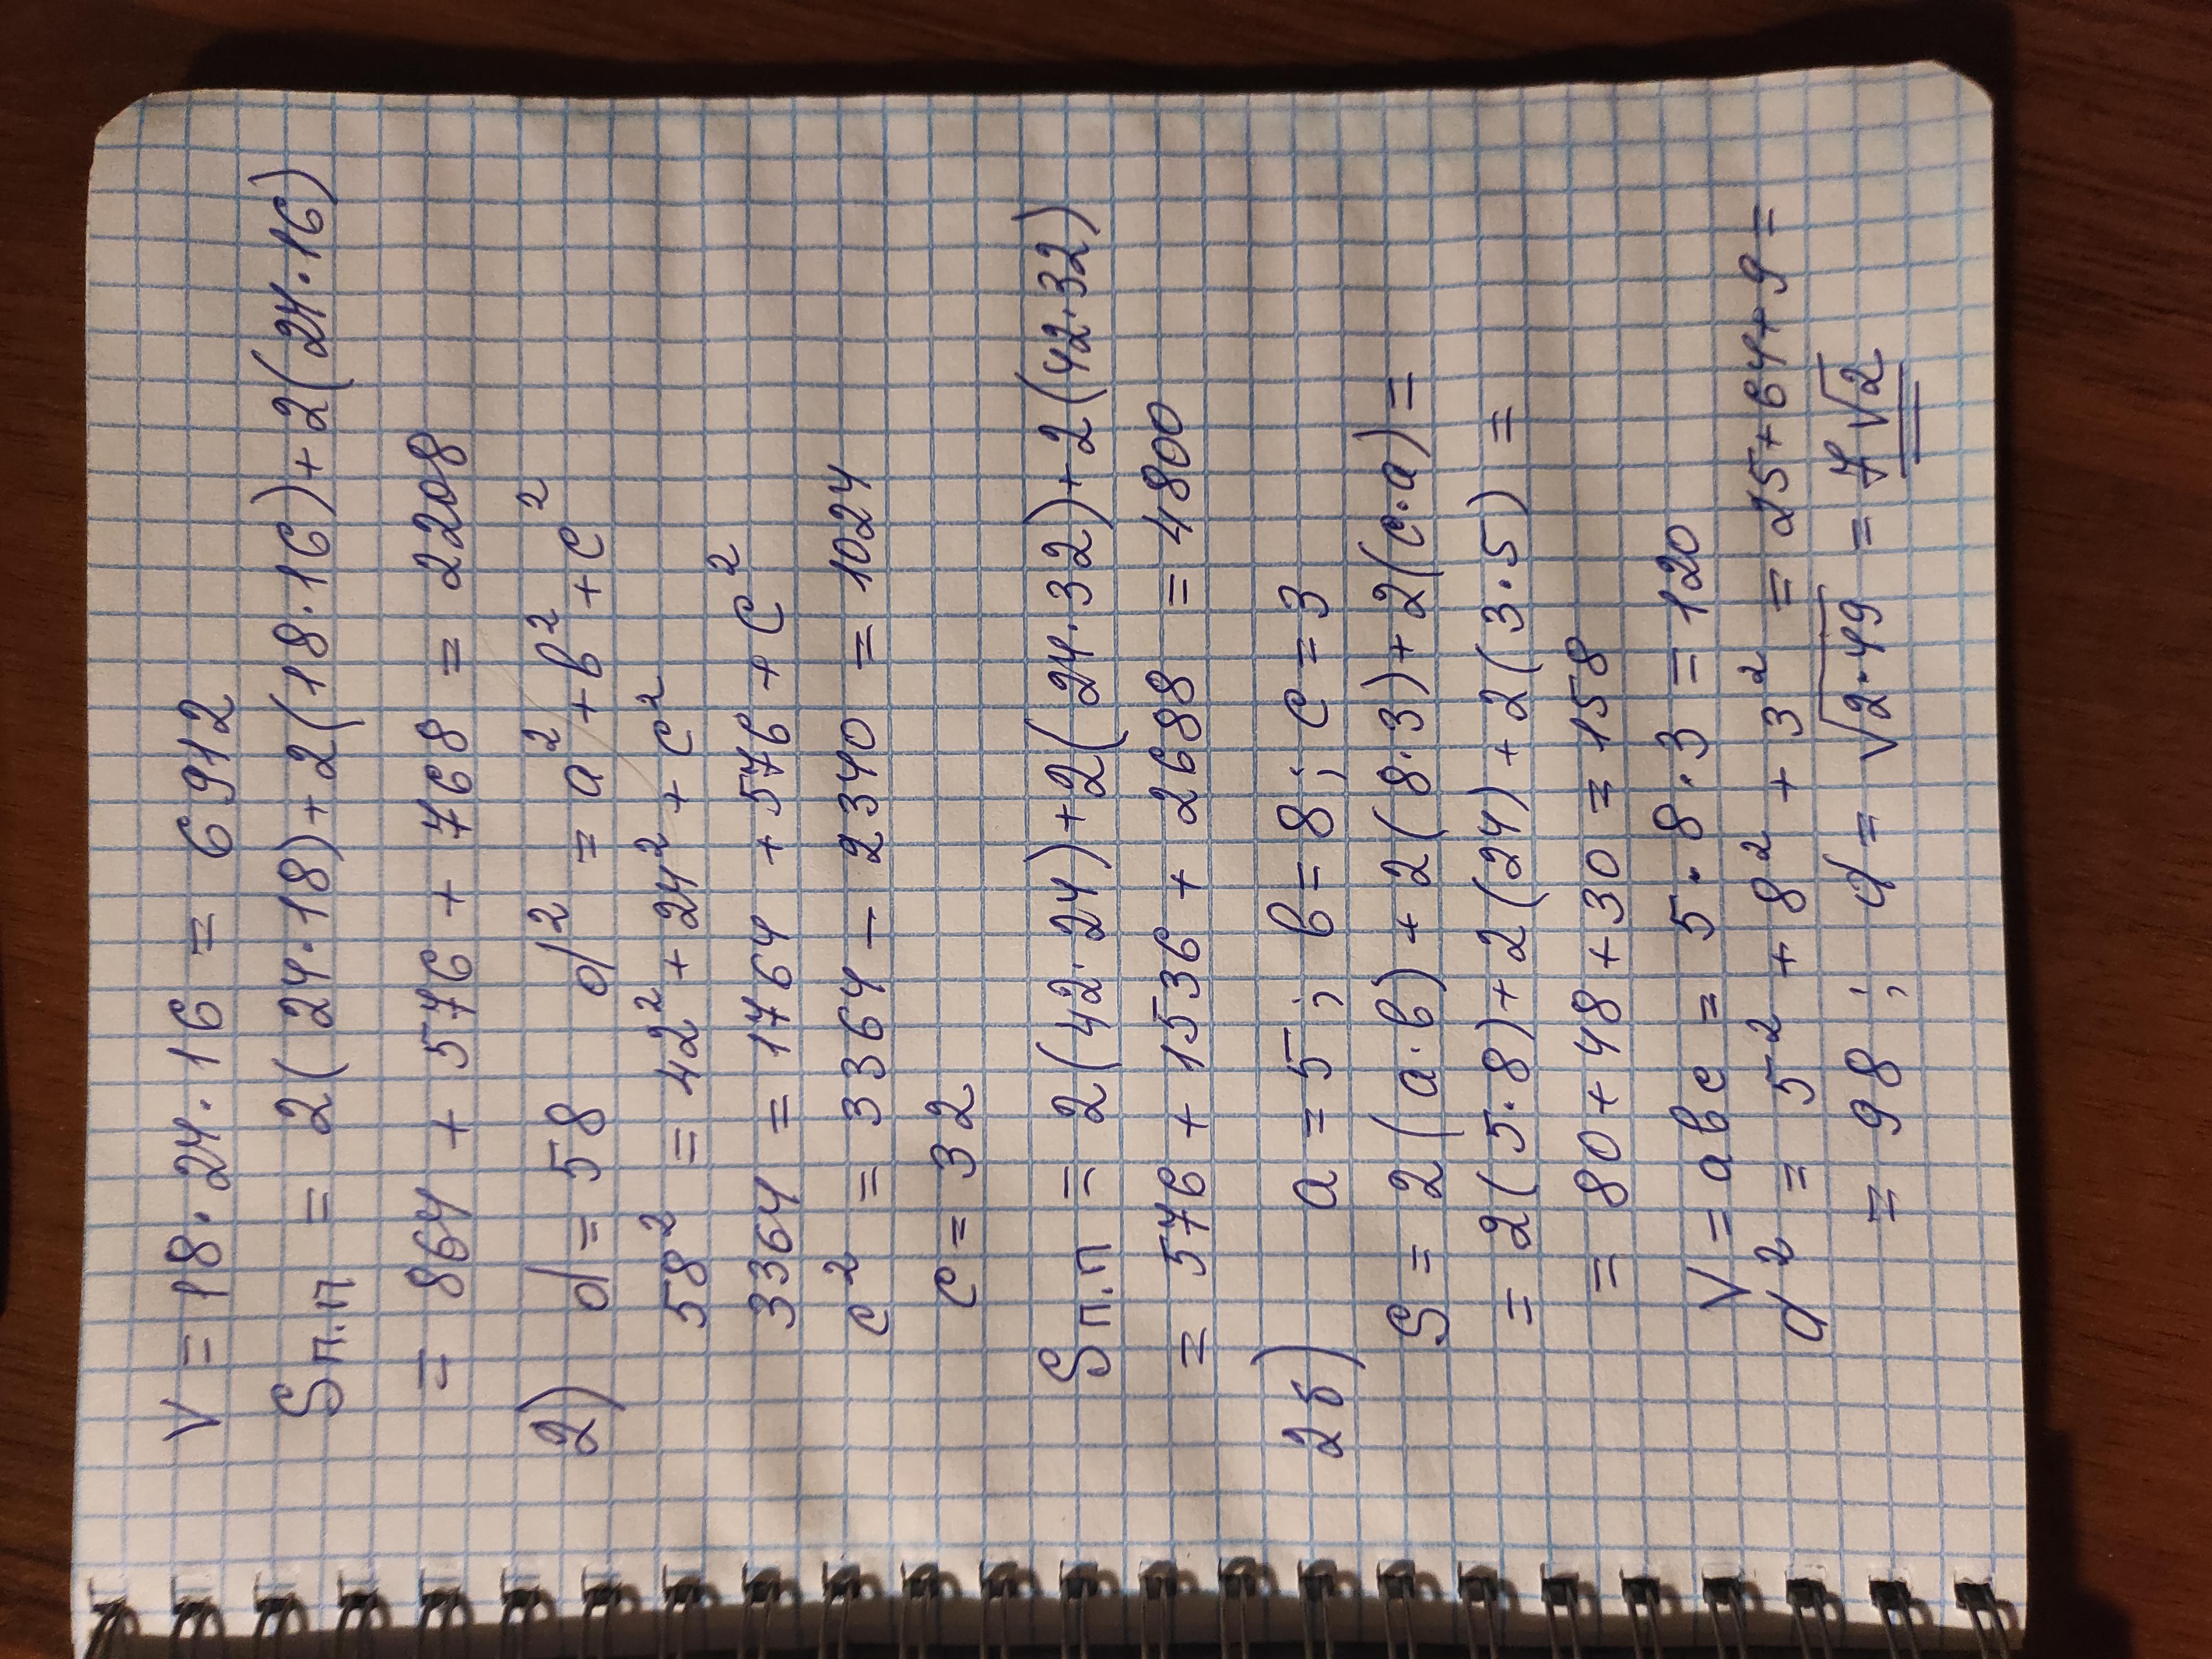 V = 18·24·16 = 6912
Sп.п = 2(24·18)+2(18·16)+2(24·16)
= 864 + 576 + 768 = 2208
2) d = 58 d² = a²+b²+c²
58² = 42²+24²+c²
3364 = 1764 + 576 + c²
c² = 3364 - 2340 = 1024
c = 32
Sп.п = 2(42·24)+2(24·32)+2(42·32)
= 576 + 1536 + 2688 = 4800
2б) a = 5; b = 8; c = 3
S = 2(a·b)+2(8·3)+2(c·a) =
= 2(5·8)+2(24)+2(3·5) =
= 80+48+30 = 158
V = abc = 5·8·3 = 120
d² = 5²+8²+3² = 25+64+9 =
= 98; d = √2·49 = 7√2